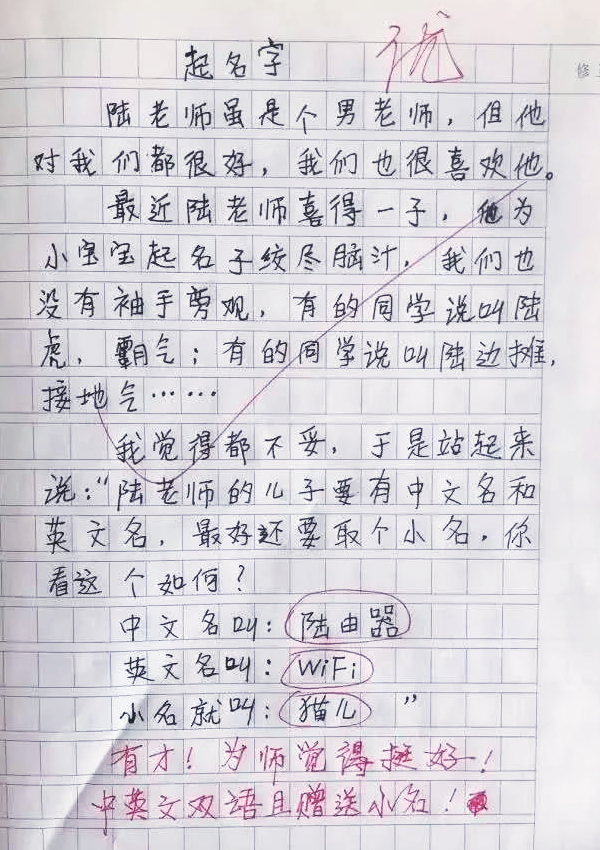 优
起名字
修
陆老师虽是个男老师，但他
对我们都很好，我们也很喜欢他。
最近陆老师喜得一子，他为
小宝宝起名子绞尽脑汁，我们也
没有袖手剪观，有的同学说叫陆
虎，霸气；有的同学说叫陆边摊，
接地气……
我觉得都不妥，于是站起来
说：“陆老师的儿子要有中文名和
英文名，最好还要取个小名，你
看这个如何？
中文名叫：陆由器
英文名叫：WiFi
小名就叫：猫儿”
有才！为师觉得挺好！
中英文双语且赠送小名！